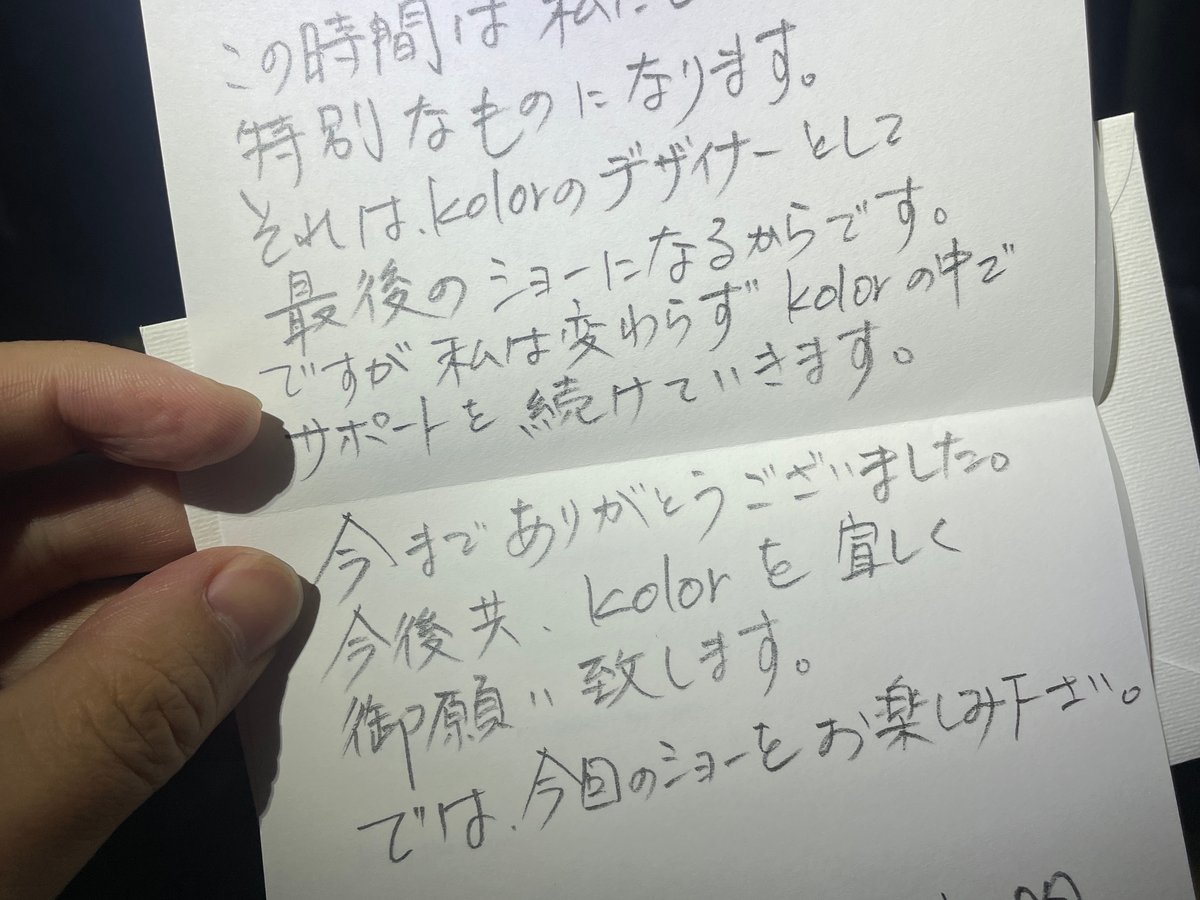 この時間は私に
特別なものになります。
それは、kolorのデザイナーとして
最後のショーになるからです。
ですが私は変わらずkolorの中で
サポートを続けていきます。
今までありがとうございました。
今後共、kolorを宜しく
御願い致します。
では、今回のショーをお楽しみ下さい。